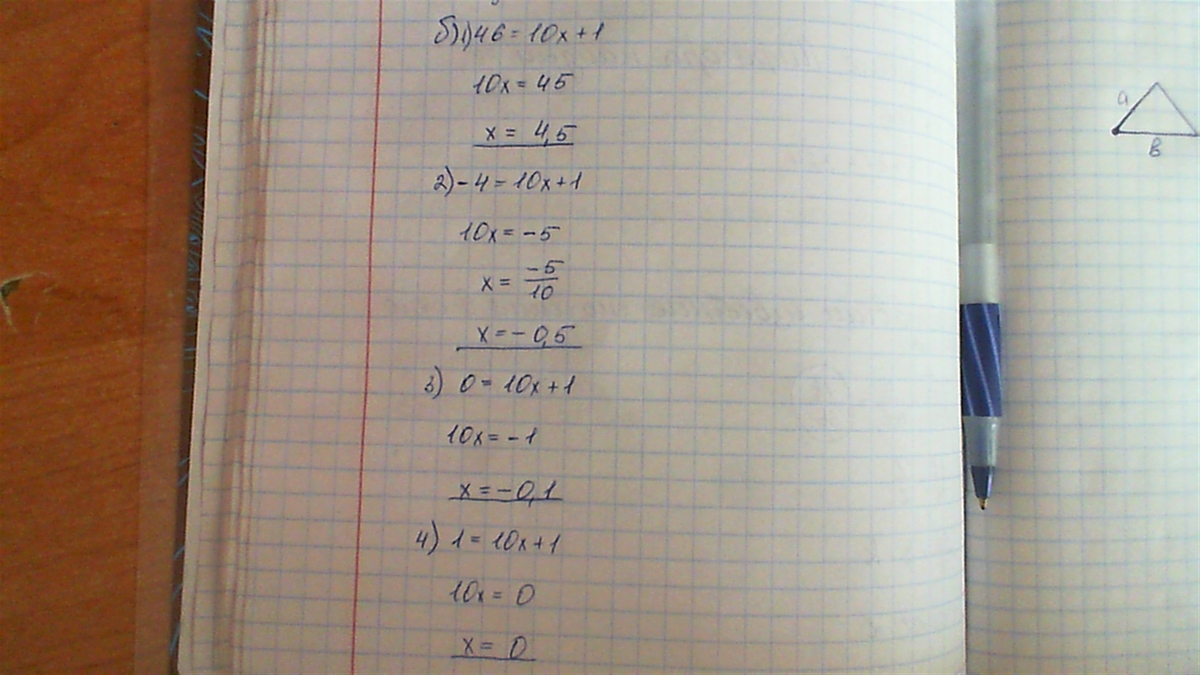 б) 1) 46 = 10x + 1
10x = 45
x = 4,5
2) - 4 = 10x + 1
10x = - 5
x = -5/10
x = - 0,5
3) 0 = 10x + 1
10x = - 1
x = - 0,1
4) 1 = 10x + 1
10x = 0
x = 0
a
в